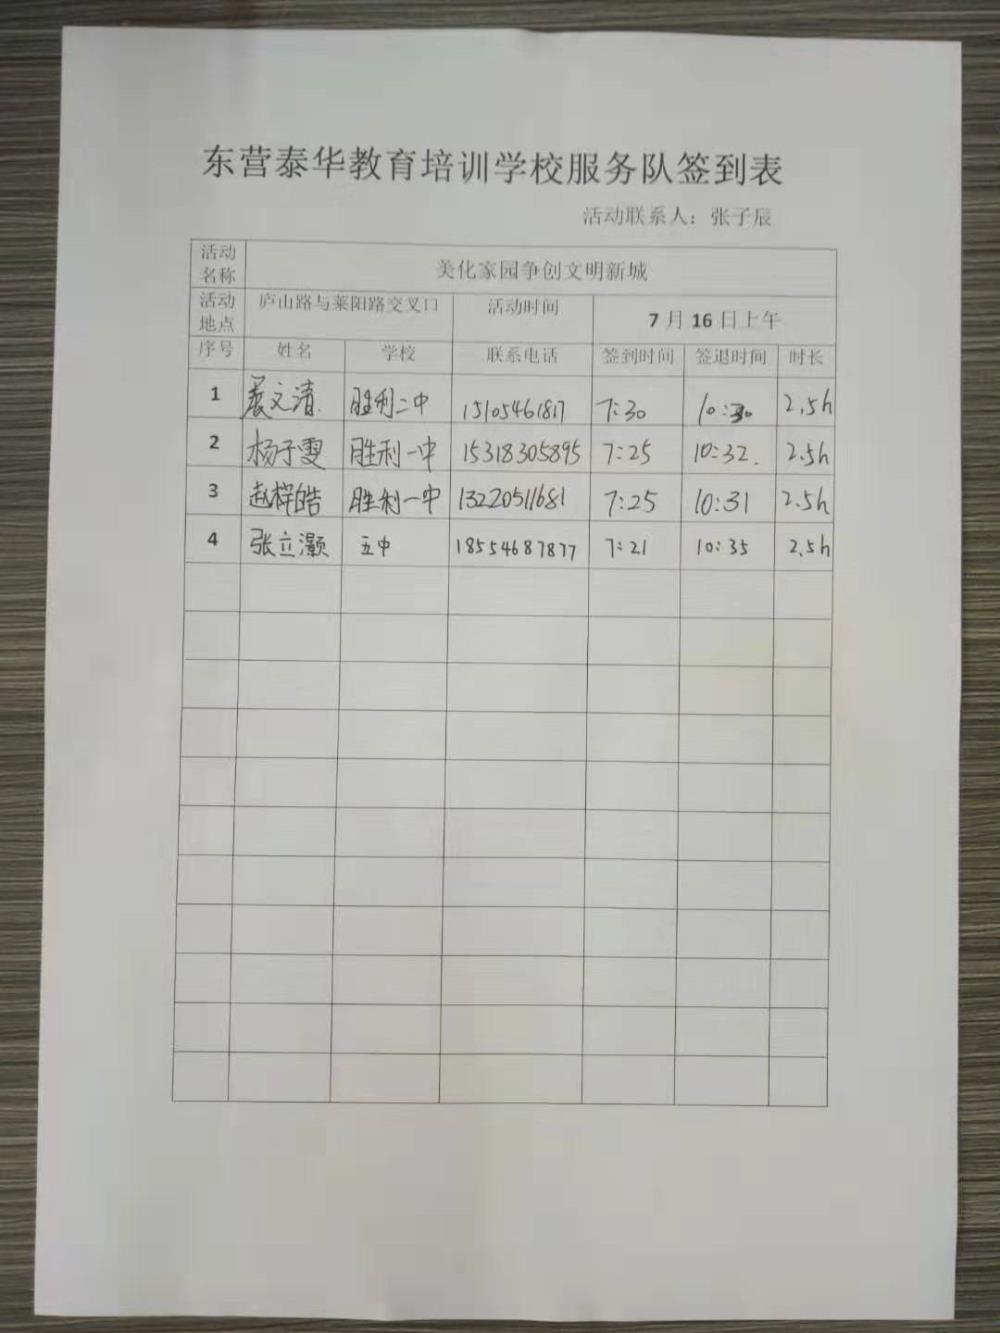 东营泰华教育培训学校服务队签到表
活动联系人：张子辰
活动名称 美化家园争创文明新城
活动地点 庐山路与莱阳路交叉口 活动时间 7月16日上午
序号 姓名 学校 联系电话 签到时间 签退时间 时长
1 展文清 胜利二中 15105461817 7:30 10:30 2.5h
2 杨子雯 胜利一中 15318305895 7:25 10:32. 2.5h
3 赵梓皓 胜利一中 13220511681 7:25 10:31 2.5h
4 张立灏 五中 18554687877 7:21 10:35 2.5h